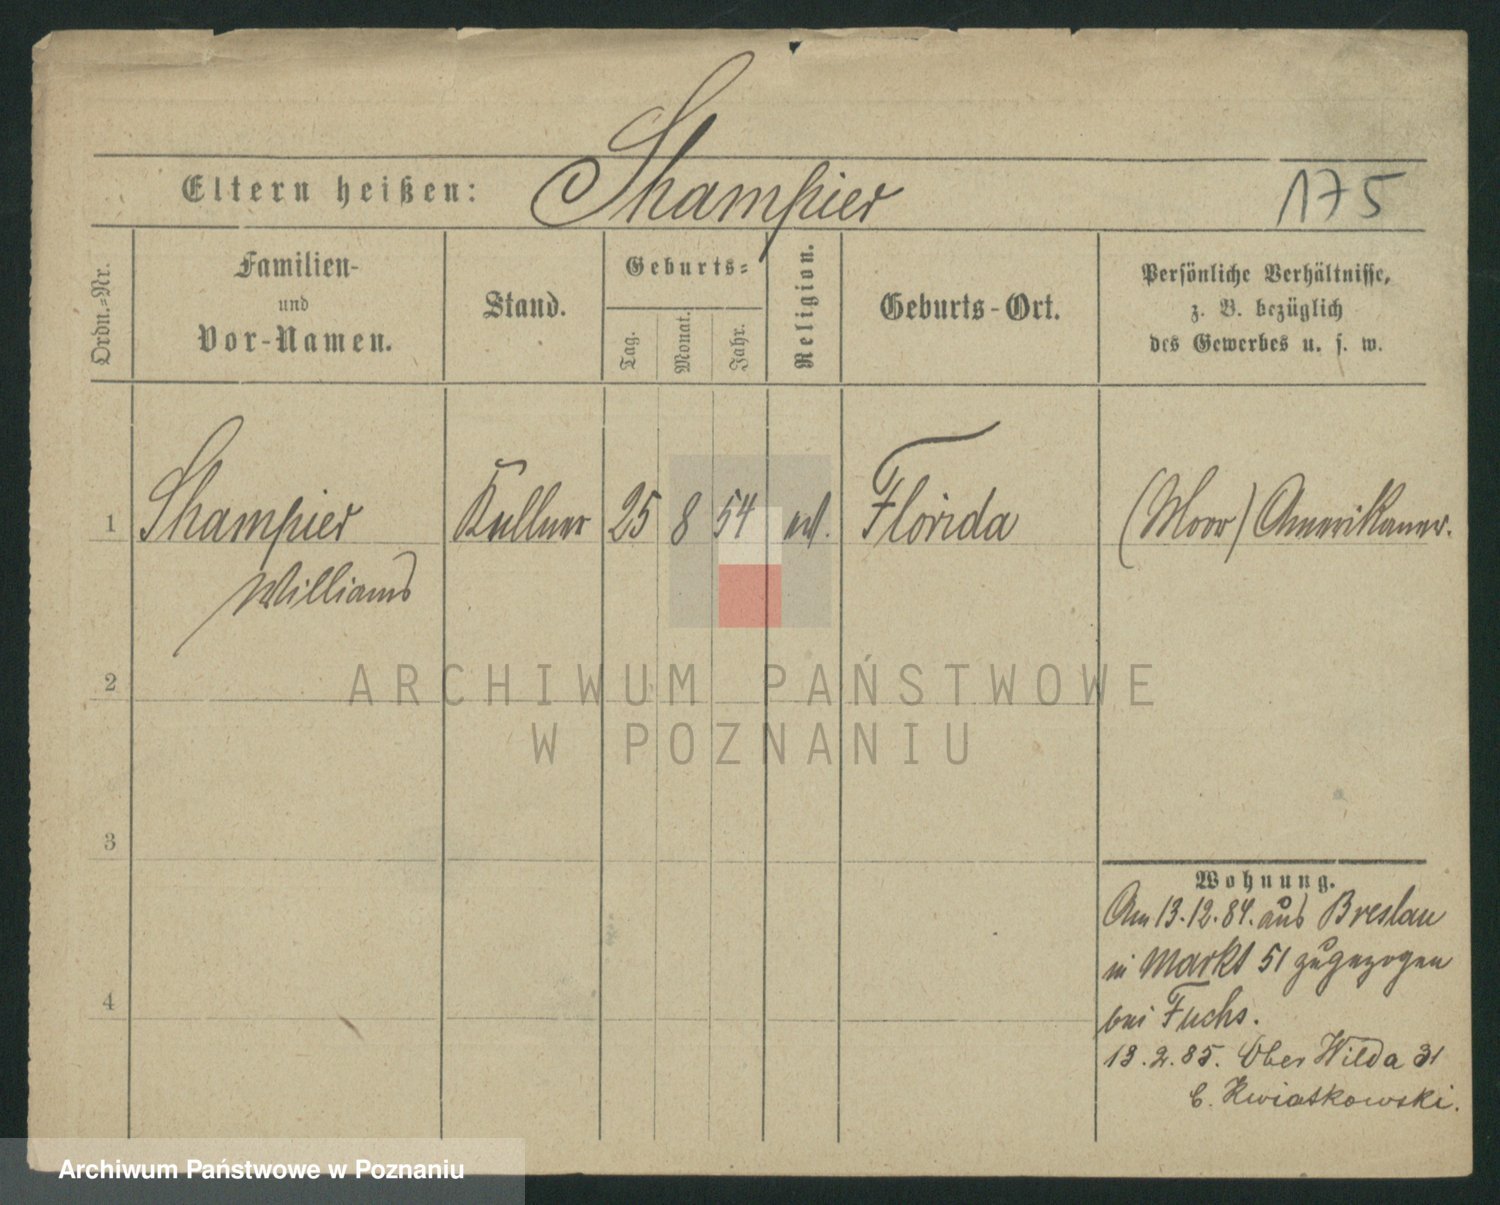 Eltern heißen: Shampier 175
Ordn.=Nr.
Familien-
und
Vor-Namen.
Stand.
Geburts=
Tag.
Monat.
Jahr.
Religion.
Geburts-Ort.
Persönliche Verhältnisse,
z. B. bezüglich
des Gewerbes u. s. w.
1 Shampier Kellner 25 8 54 Florida (Moor) Amerikaner.
Williams
2
ARCHIWUM PAŃSTWOWE
W POZNANIU
3
Wohnung.
Am 13.12.84. aus Breslau
in Markt 51 zugezogen
bei Fuchs.
4
13.2.85. Ober Wilda 31
b. Kwiatkowski.
Archiwum Państwowe w Poznaniu